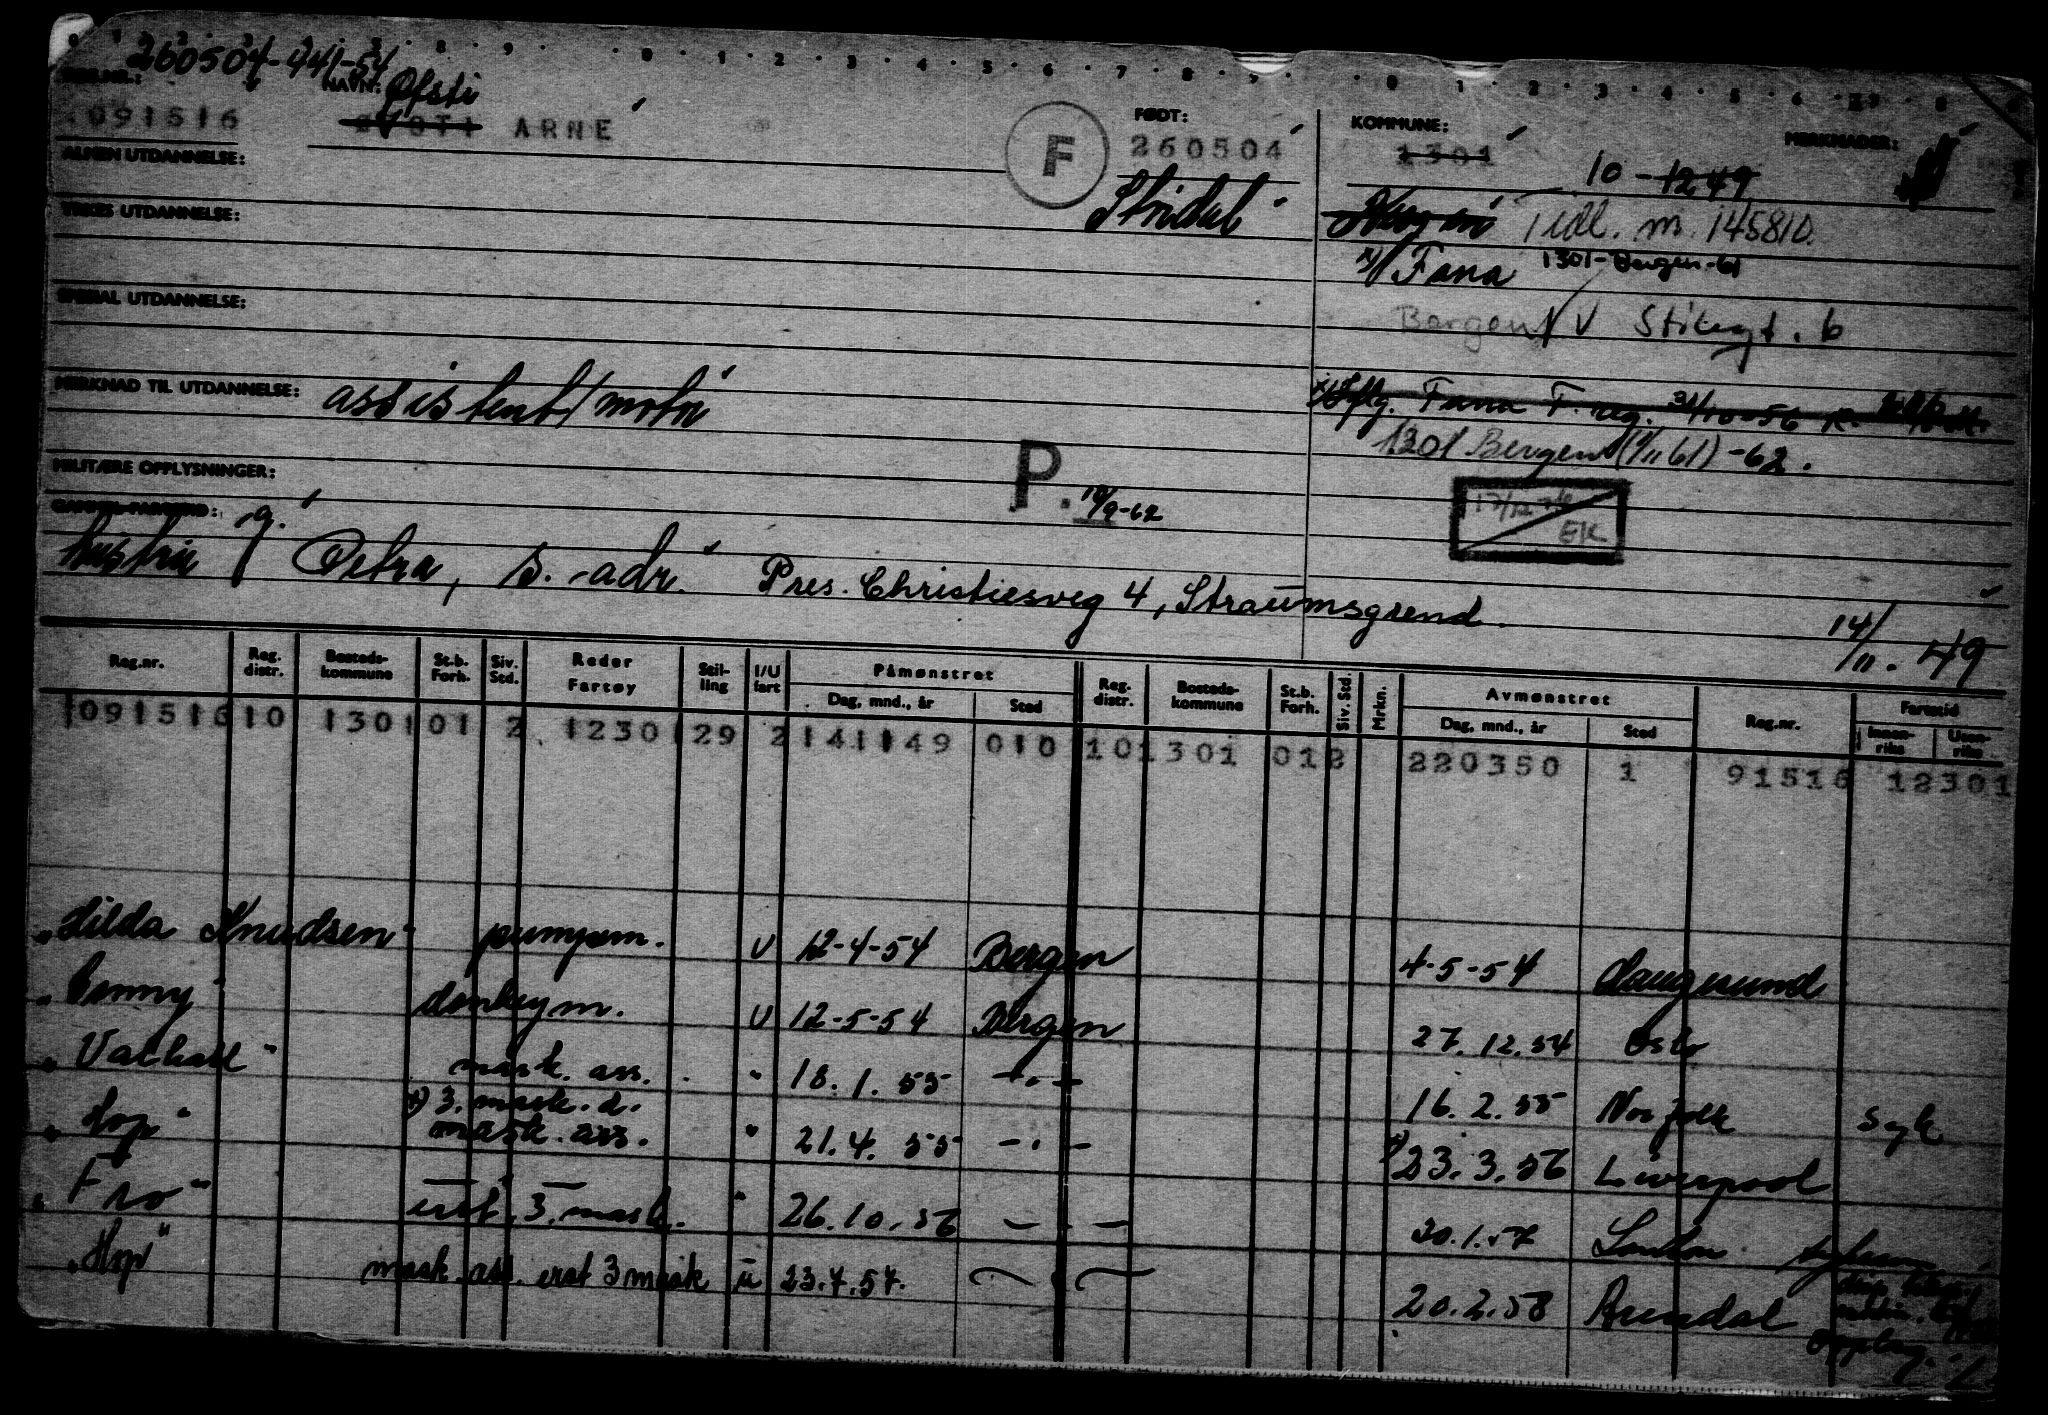 260504-441-54
REG.NR.: NAVN: Øfsti FØDT: KOMMUNE: MERKNADER:
091516 ARNE F 260504 1301
10-1249
ALMEN UTDANNELSE:
Bergen Tidl. m. 145810.
YRKES UTDANNELSE:
x) Fana 1301-Bergen-61
SPESIAL UTDANNELSE:
Bergen
MERKNAD TIL UTDANNELSE: assistent/motor
Fana F. reg. 31/10-56
1301 Bergen (1/11 61) -62.
MILITÆRE OPPLYSNINGER:
P. 18/9-62
17/12 76
EK
GAMMEL FARTSTID:
hustru g. Petra, s. adr. Pres. Christiesveg 4, Straumsgrend.
14/11-49
Reg.nr. Reg. distr. Bosteds-kommune St.b. Forh. Siv. Std. Reder Fartøy Stil-ling I/U fart Påmønstret Reg. distr. Bosteds-kommune St.b. Forh. Siv. Std. Mrkn. Avmønstret Reg.nr. Farestid
Dag, mnd., år Sted Dag, mnd., år Sted Innen-riks Uten-riks
1091516 10 1301 01 2 1230 129 2 141149 010 101301 012 220350 1 91516 12301
"Hilda Knudsen" pumpem. U 12-4-54 Bergen 4-5-54 Haugesund
"Ronny" donkeym. U 12-5-54 Bergen 27.12.54 Oslo
"Valhall" mask. ass. " 18.1.55 -"- 16.2.55 Norfolk syk
x) 3. mask. d.
"Hop" mask. ass. " 21.4.55 -"- x) 23.3.56 Liverpool
"Fro" erst. 3. mask. " 26.10.56 -"- 30.1.57 London
"Hop" mask. ass. erst 3 mask u 23.7.57. -"- 20.2.58 Arendal